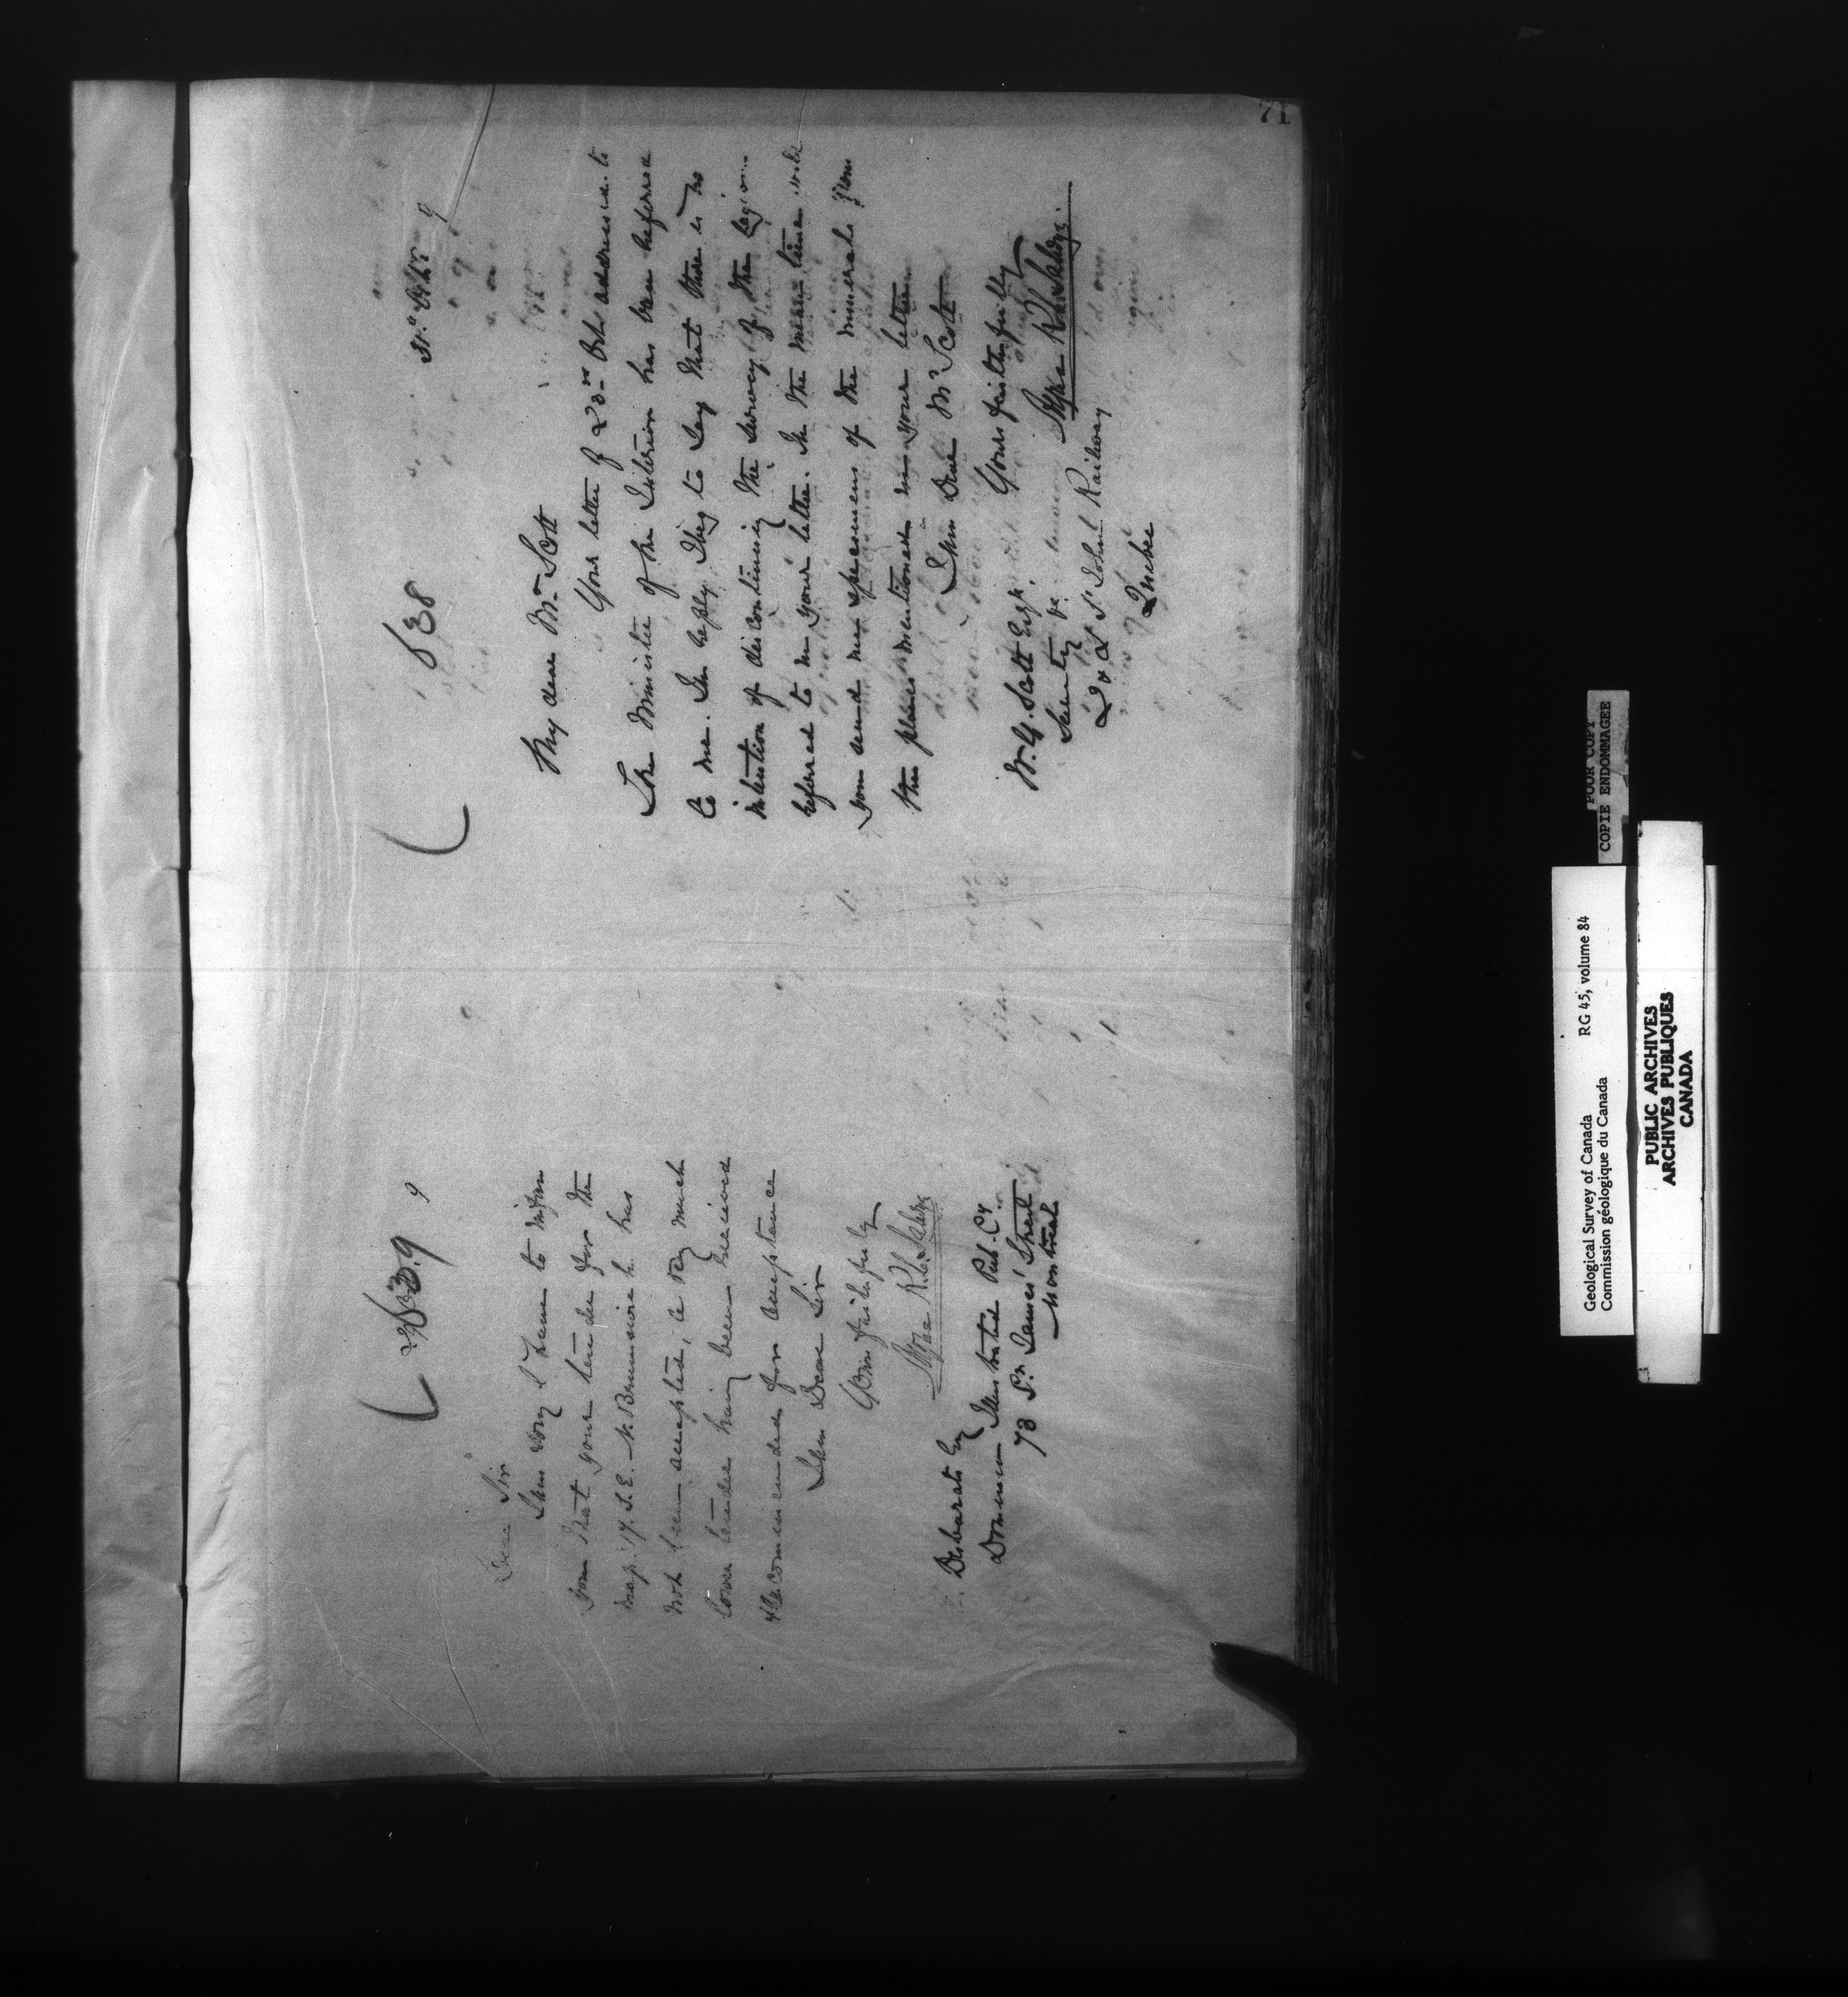 71
139
9
Dear Sir
I am sorry I have to inform
you that your tender for the
map 17. S.E. N. Brunswick has
not been accepted, a very much
lower tender having been received
& recommended for acceptance
I am Dear Sir
Yours faithfully
Alfred R. C. Selwyn
Desbarats Esq
Dominion Illustrated Pub. Cy
73 St. James' Street
Montreal
138
31st Oct. 9
My dear Mr. Scott
Your letter of 23rd Oct. addressed to
The Minister of the Interior has been referred
to me. In reply I beg to say that there is no
intention of discontinuing the survey of the region
referred to in your letter. In the mean time
you send me specimens of the minerals from
the places mentioned in your letter
I am Dear Mr. Scott
Yours faithfully
Alfred R. C. Selwyn
W. G. Scott Esq.
Secrety &c.
Q & L St. John Railway
Quebec
POOR COPY
COPIE ENDOMMAGEE
Geological Survey of Canada RG 45, volume 84
Commission géologique du Canada
PUBLIC ARCHIVES
ARCHIVES PUBLIQUES
CANADA